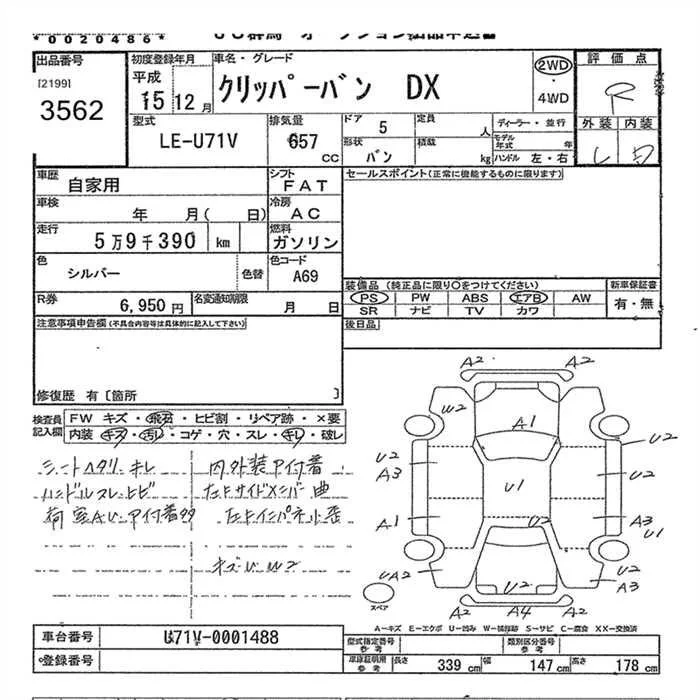 *0020486*
出品番号 初度登録年月 車名・グレード 評価点
[2199] 平成 クリッパーバン DX 2WD R
3562 15 12月 ・4WD 外装 内装
型式 排気量 ドア 5 定員 人 ディーラー・並行
LE-U71V 657 CC 形状 バン 積載 kg モデル年式 年
ハンドル 左・右
車歴 自家用 シフト FAT セールスポイント(正常に機能するものに限ります)
車検 年 月( 日) 冷房 AC
走行 5万9千390 km 燃料 ガソリン
色 シルバー 色替 色コード A69
装備品 (純正品に限り○をつけてください) 新車保証書
R券 6,950円 名変通知期限 月 日 PS PW ABS エアB AW 有・無
SR ナビ TV カワ
注意事項申告欄(不具合内容等は具体的に記入して下さい) 後日品
修復歴 有〔箇所 〕
検査員記入欄 FW キズ・飛石・ヒビ割・リペア跡・×要
内装 キズ・汚レ・コゲ・穴・スレ・キレ・破レ
シートヘタリ キレ 内外装A付着
ハンドルスレ ヒビ 左上サイドメンバー曲
荷室AU A付着 左上インパネ小歪
キズU W2
A2 A2
W2 A1 U2
U2 A3 U1 U2 A3
A1 U2 A3 U1
UA2 U2 U2 A3
A2 A4 A2
スペア
A-キズ E-エクボ U-凹み W-補修跡 S-サビ C-腐食 XX-交換済
車台番号 U71V-0001488 型式指定番号 参考 類別区分番号 参考
登録番号 車庫証明用 参考 長さ 339 cm 幅 147 cm 高さ 178 cm